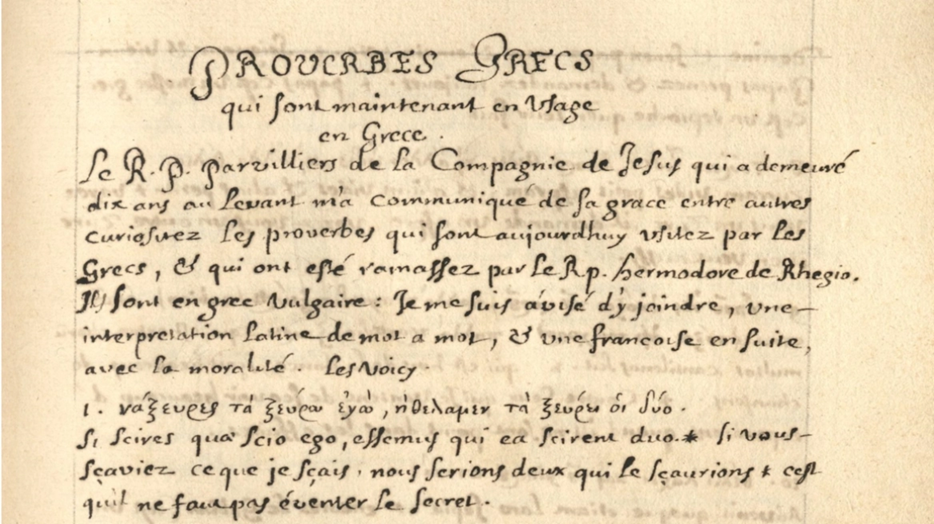 PROUERBES GRECS
qui sont maintenant en Vsage
en Grece.
Le R. P. Parvilliers de la Compagnie de Jesus qui a demeuré
dix ans au levant m'a communiqué de sa grace entre autres
curiositez les proverbes qui sont aujourdhuy vsitez par les
Grecs, & qui ont esté ramassez par le R. p. hermodore de Rhegio.
Ils sont en grec vulgaire : Je me suis avisé d'y joindre, vne
interpretation latine de mot a mot, & vne françoise en suite,
avec la moralité. les voicy.
1. νάξευρες τά ξευρω ἐγὼ, ἤθελαμεν τὰ ξευρω οἱ δύο.
Si scires quæ scio ego, essemus qui ea scirent duo.* si vous
sçaviez ce que je sçais, nous serions deux qui le sçaurions * c'est
qu'il ne faut pas éventer le secret.